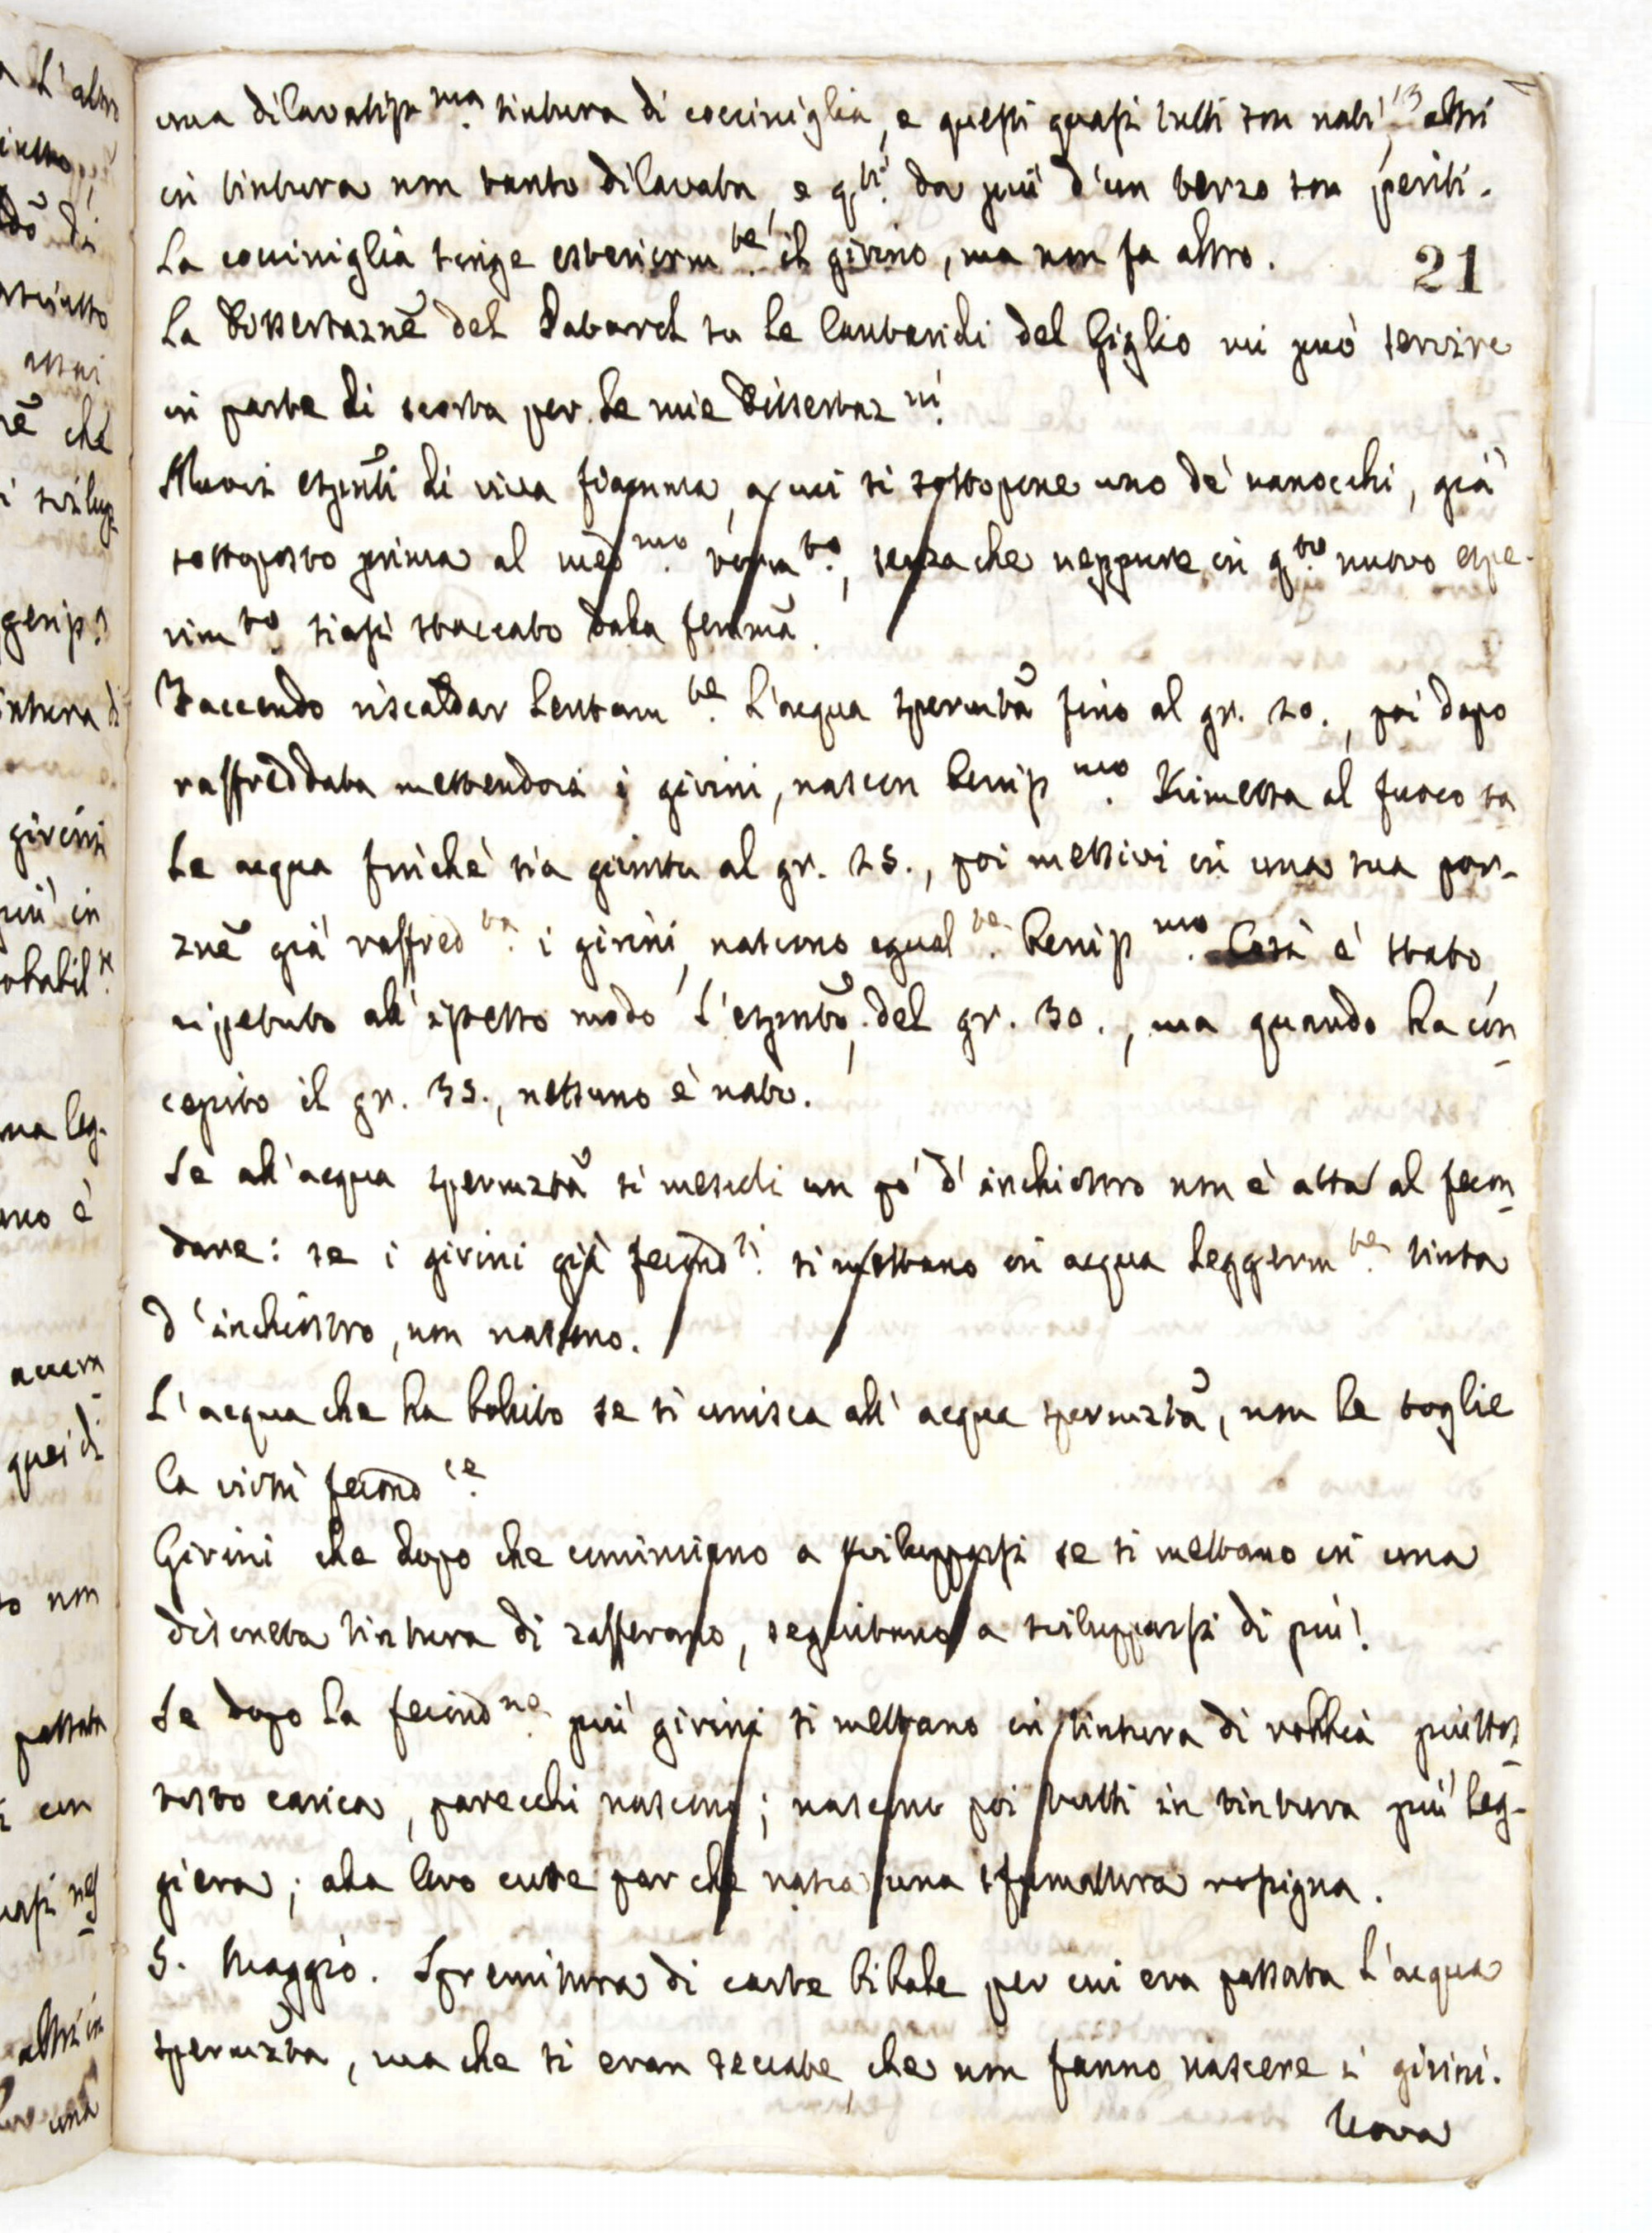 una dilavatiss.ma tintura di cocciniglia, e questi quasi tutti son nati, altri
in tintura non tanto dilavata, e q.ti da più d'un terzo son periti.
La cocciniglia tinge esteriorm.te il girino, ma non fa altro.
21
La Dissertaznē del su le Cantaridi del Giglio mi può servire
in parte di scorta per le mie Dissertaz.ni
Nuovi espmti di viva fiamma, a cui si sottopone uno de' ranocchi, già
sottoposto prima al med.mo torm.to, senza che neppure in q.to nuovo espe-
rim.to siasi staccato dala femmā.
Faccendo riscaldar lentam.te l'acqua spermtā fino al gr. 20., poi dopo
raffreddata mettendovi i girini, nascon beniss.mo Rimessa al fuoco ta
le acqua finchè sia giunta al gr. 25., poi messivi in una sua por-
znē già raffred.ta i girini, nascono egual.te beniss.mo Così è stato
ripetuto all'istesso modo l'espmtō del gr. 30., ma quando ha con
cepito il gr. 35., nessuno è nato.
Se all'acqua spermztā si mescli un pò d'inchiostro non è atta al fecon
dare: se i girini già fecond.ti si mettano in acqua leggerm.te tinta
d'inchiostro, non nascono.
L'acqua che ha bollito se si unisca all'acqua spermztā, non le toglie
la virtù fecond.ce
Girini che dopo che cominciano a svilupparsi se si mettano in una
discreta tintura di zafferano, seguitano a svilupparsi di più.
Se dopo la fecond.ne più girini si mettano in tintura di robbia piuttos
tosto carica, parecchi nascono; nascono poi tutti in tintura più leg-
giera; ala loro cute par che nasca una sfumattura rosigna.
5. Maggio. Spremitura di carte bibole per cui era passata l'acqua
spermztā, ma che si eran seccate, che non fanno nascere i girini.
Uova